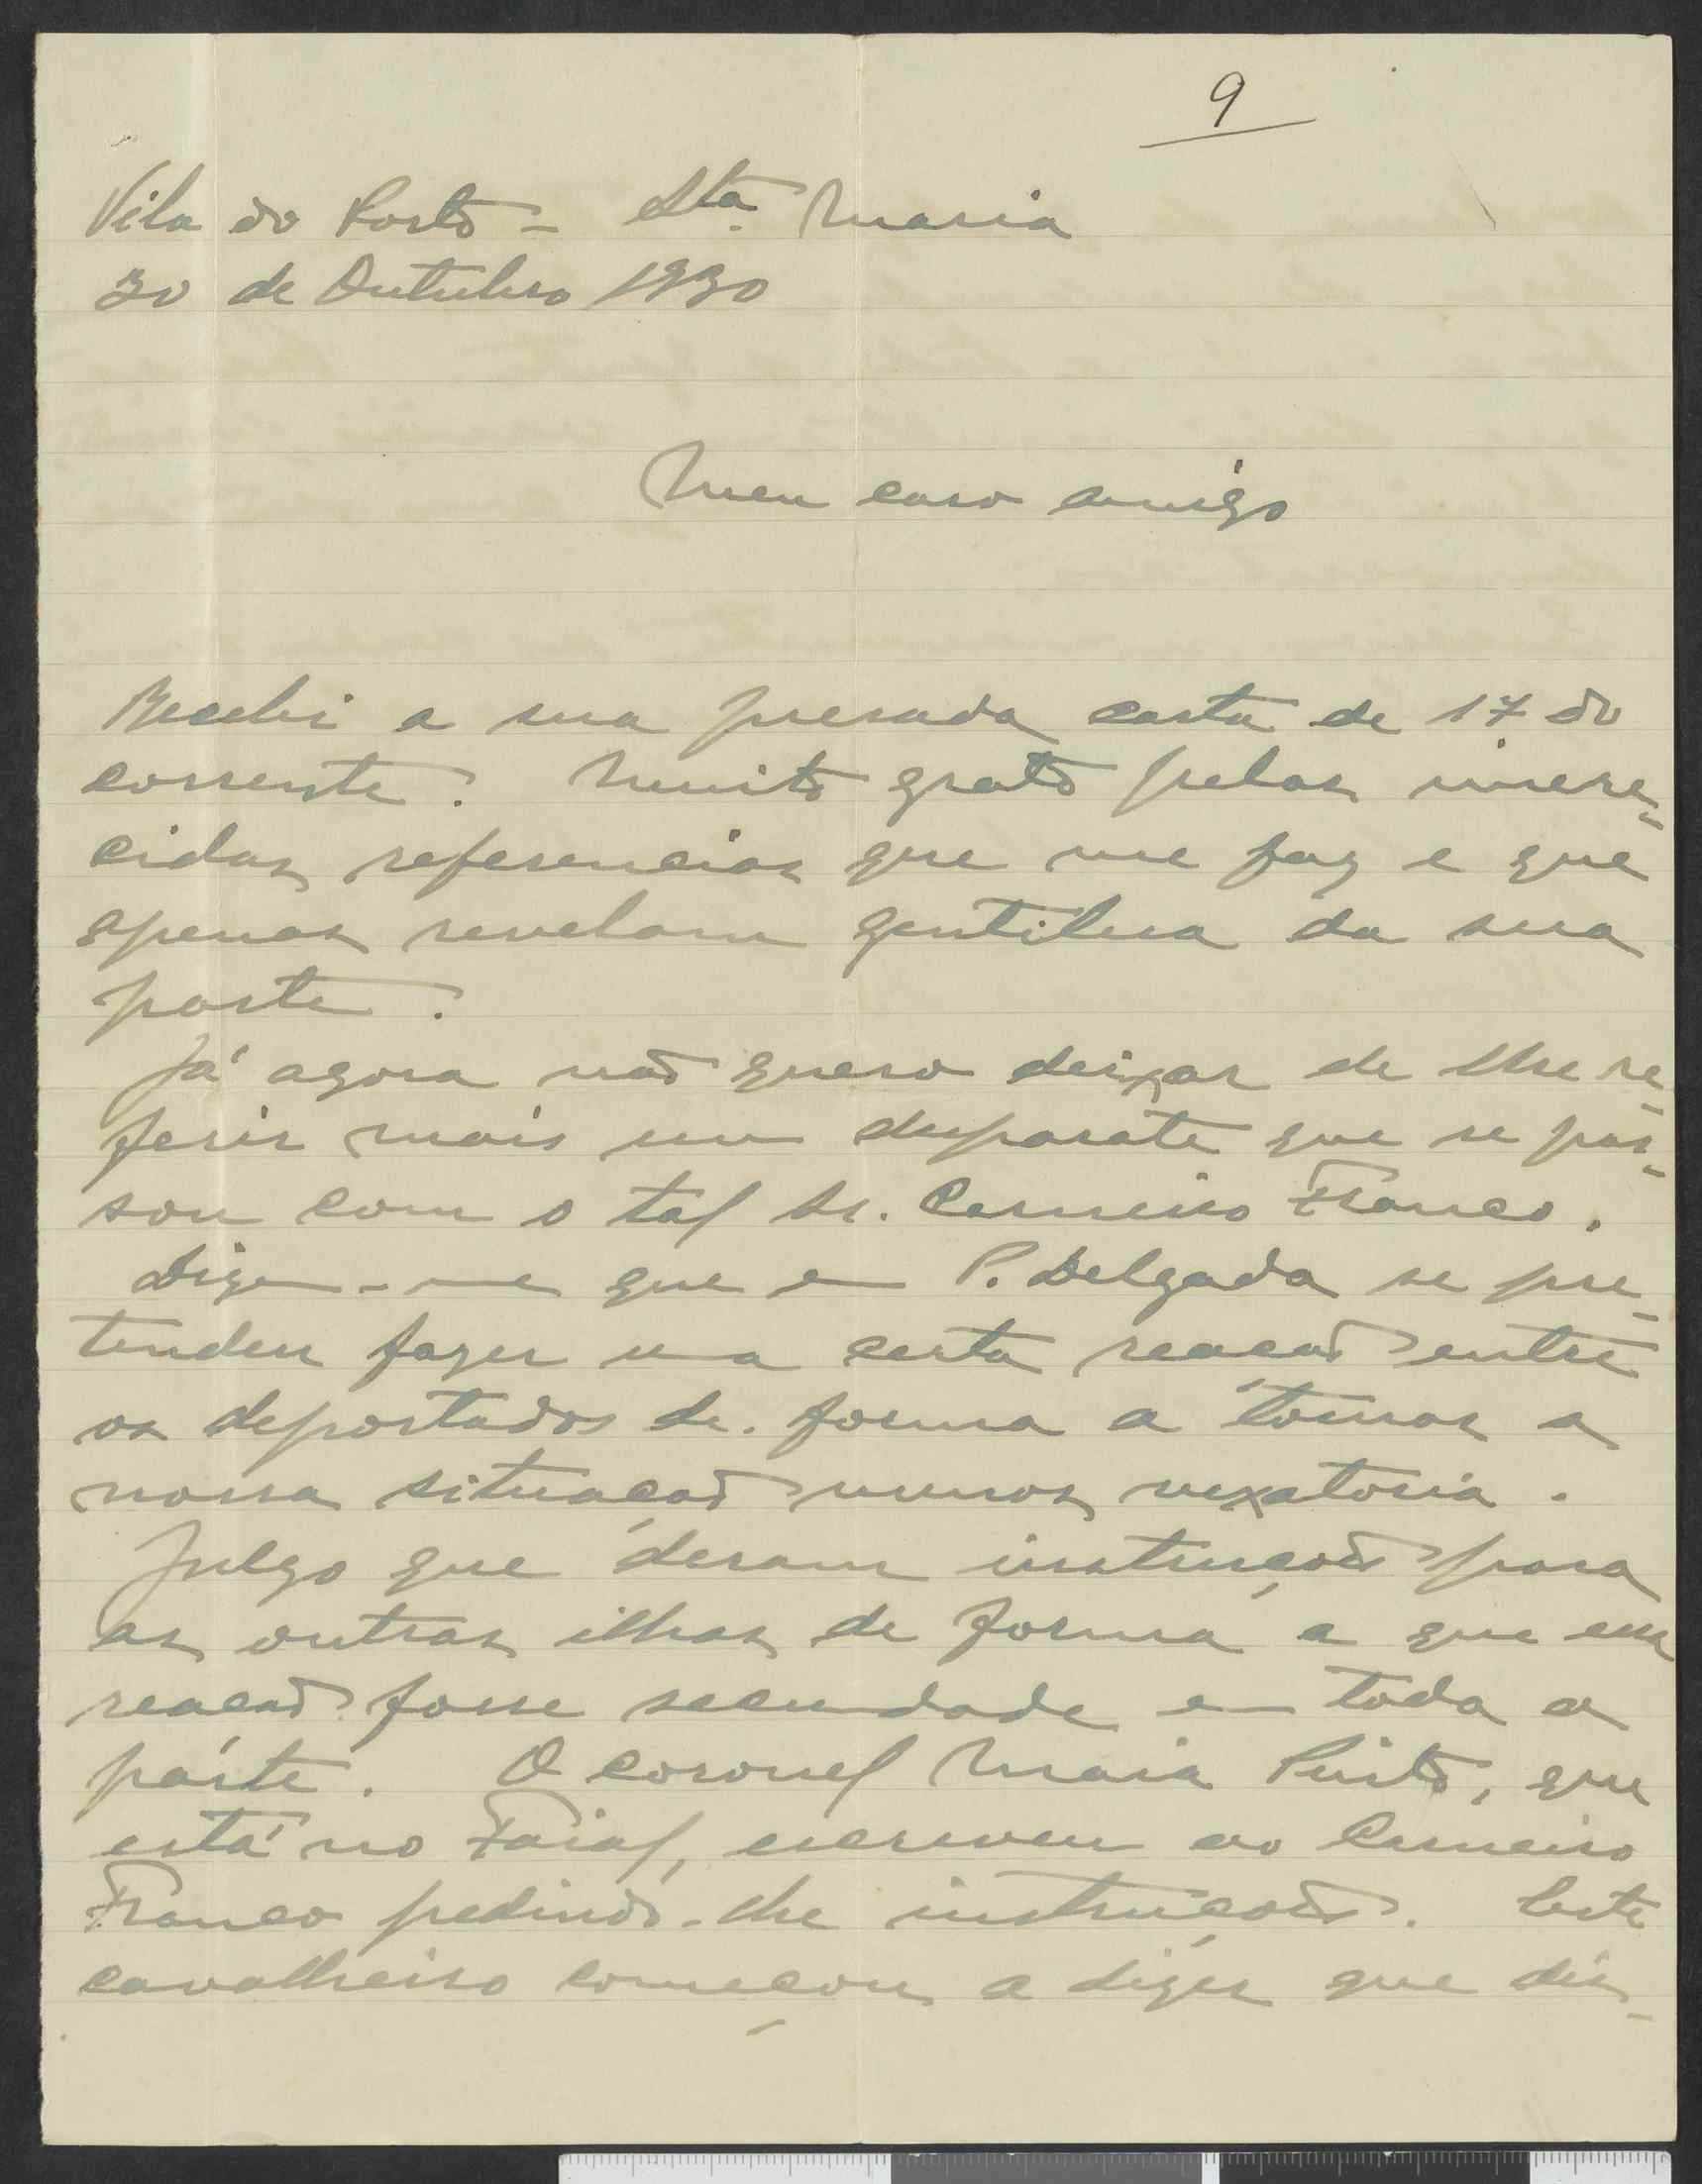 9
Vila do Porto - Sta. Maria
30 de Outubro 1930
Meu caro amigo
Recebi a sua presada carta de 17 do
corrente. Muito grato pelas imere-
cidas referencias que me faz e que
apenas revelam gentilesa da sua
parte.
Já agora não quero deixar de lhe re-
ferir mais um disparate que se pas-
sou com o tal Sr. Carneiro Franco.
Dizem-me que em P. Delgada se pre-
tendeu fazer uma certa reacção entre
os deportados de forma a tornar a
nossa situação menos vexatoria.
Julgo que deram instruções para
as outras ilhas de forma a que essa
reacção fosse secundada em toda a
parte. O coronel Maia Pinto, que
está no Faial, escreveu ao Carneiro
Franco pedindo-lhe instruções. Este
cavalheiro começou a dizer que dis-